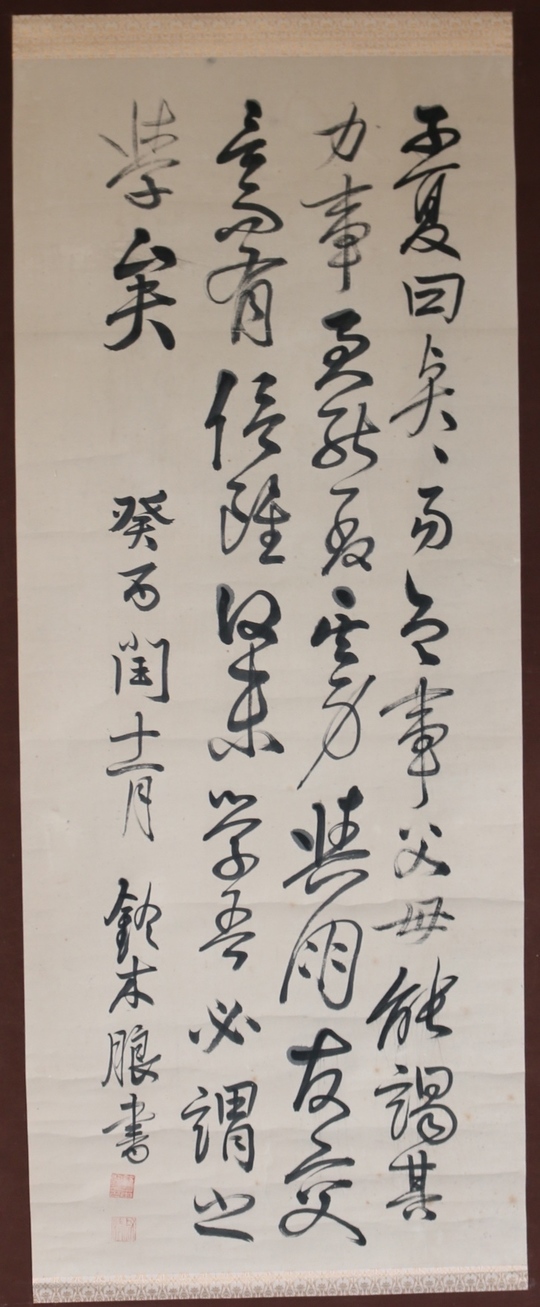 子夏曰賢〻易色事父母能竭其
力事君能致其身與朋友交
言而有信雖曰未学吾必謂之
學矣
癸酉閏十一月 鈴木朖書